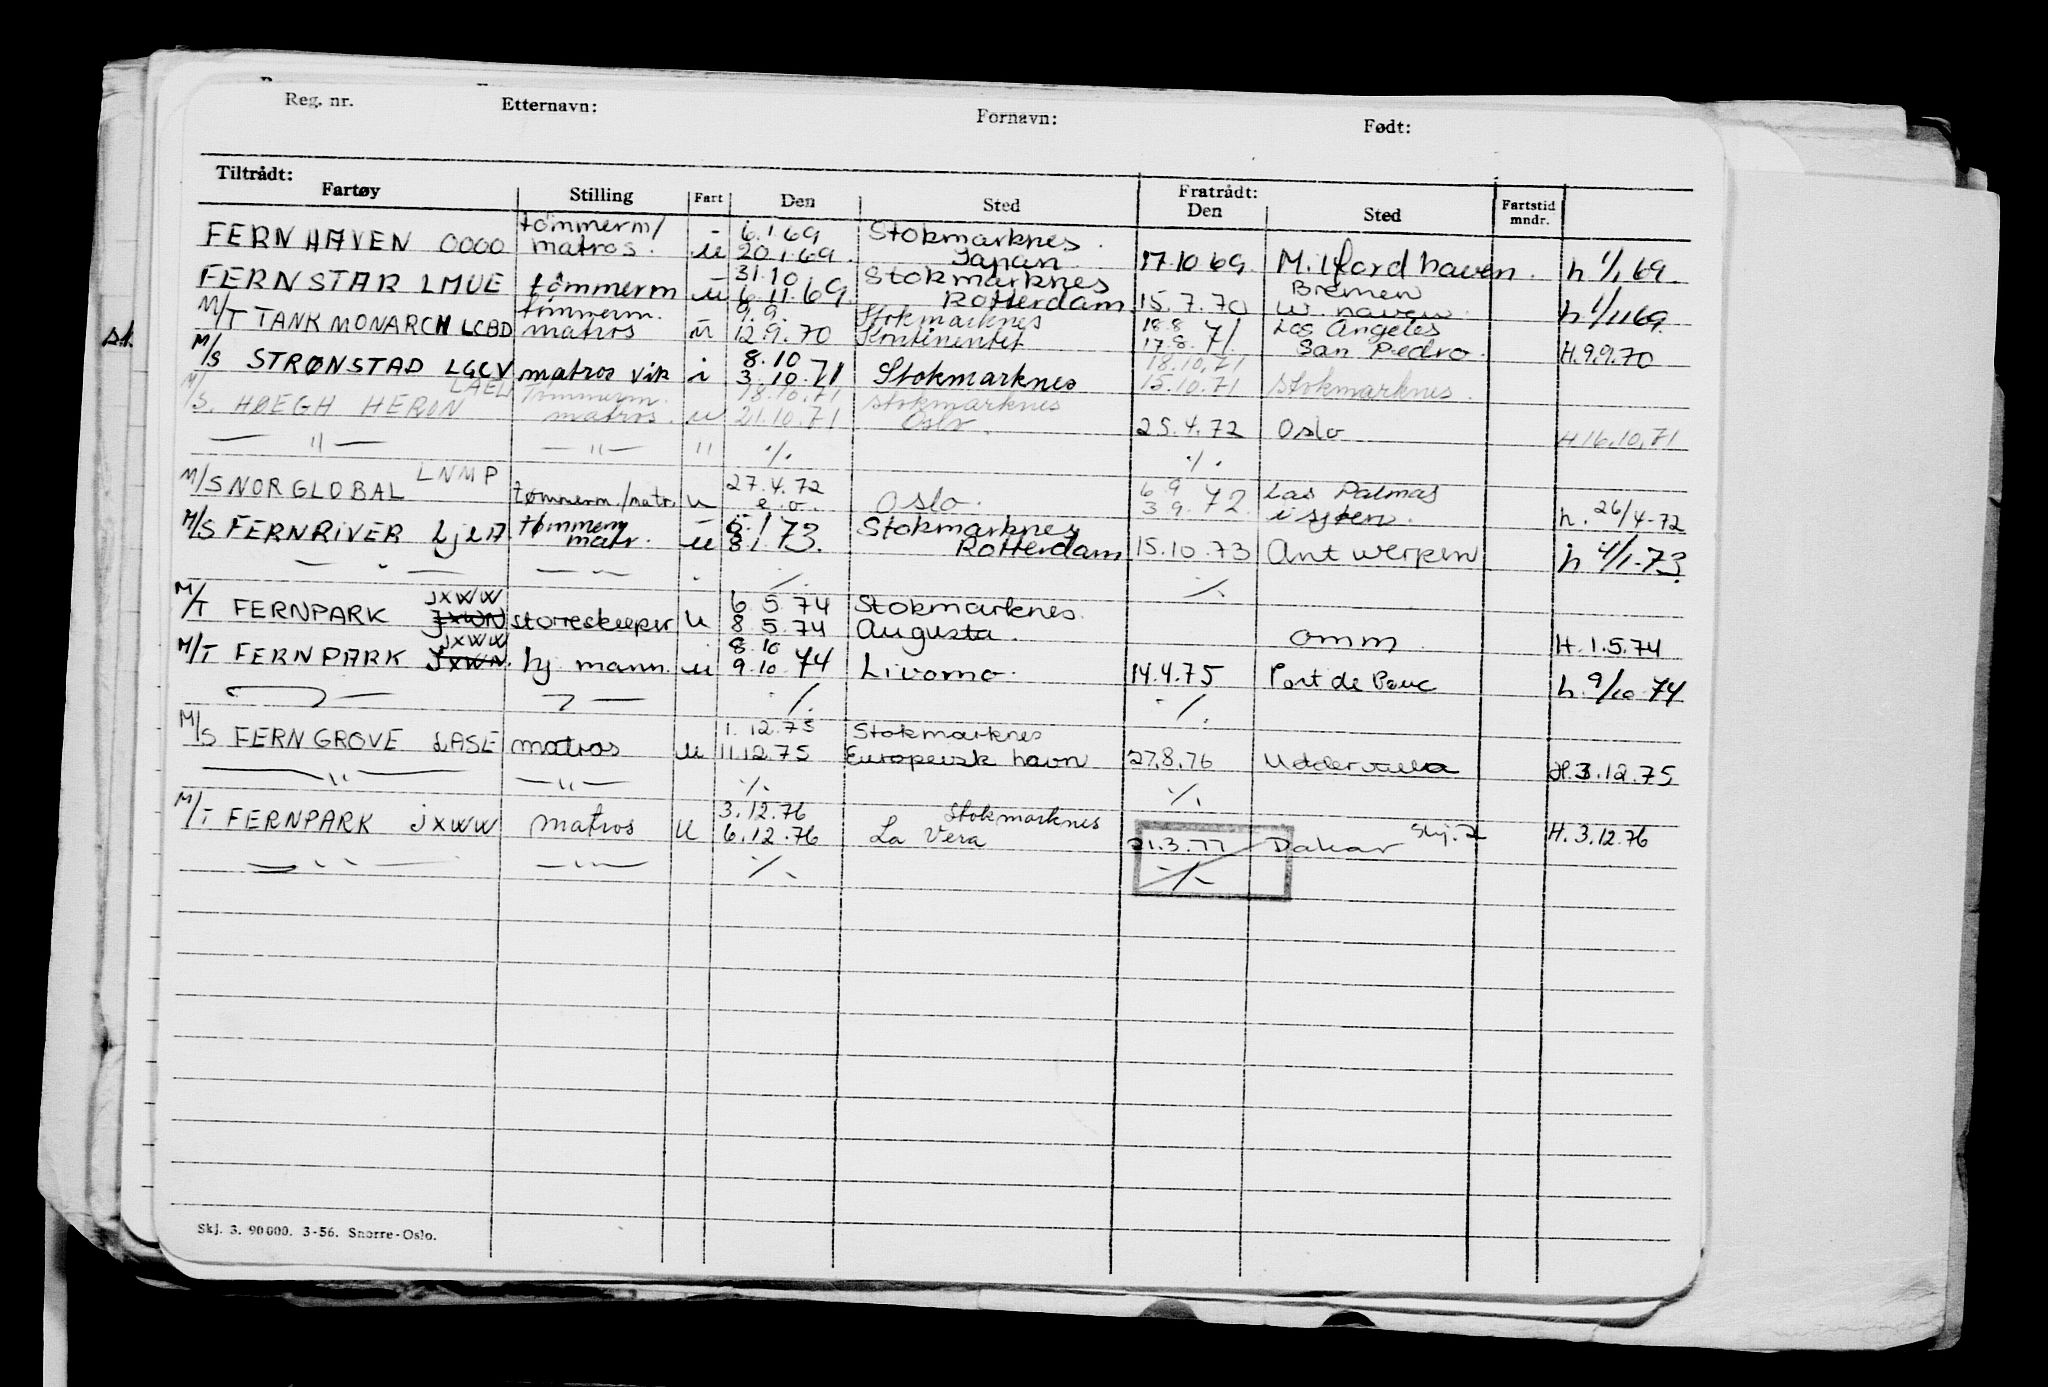 Reg. nr. Etternavn: Fornavn: Født:
Tiltrådt: Fratrådt:
Fartøy Stilling Fart Den Sted Den Sted Fartstid mndr.
tömmerm/ - 6.1.69 Stokmarknes.
FERNHAVEN OOOO matros. u 20.1.69. Japan 17.10.69. Milford haven. h 1/1 69.
- 31.10 Stokmarknes Bremen
FERNSTAR LMUE tömmerm u 6.11.69. Rotterdam 15.7.70 W. haven. h 1/11 69
tömmerm. 9.9. Stokmarknes 18.8 71. Los Angeles
M/T TANK MONARCH LCBD matros u 12.9.70 Kontinentet 17.8. San Pedro. H.9.9.70
8.10 18.10.71
M/S STRØNSTAD LGCV matros vik i 3.10.71 Stokmarknes 15.10.71 Stokmarknes.
LAELJ tömmerm. 18.10.71 Stokmarknes
M/S. HØEGH HERON matros. u 21.10.71 Oslo. 25.4.72 Oslo H 16.10.71
— " — — " — " ./. ./.
LNMP 27.4.72 6.9 72. Las Palmas
M/S NORGLOBAL tømmerm./matr. u e.o. Oslo. 3.9. i sjøen. h. 26/4-72
tømmerm - 5. Stokmarknes
M/S FERNRIVER LJLA matr. u 8.1.73. Rotterdam 15.10.73 Antwerpen h 4/1-73.
— " — — " — ./. ./.
JXWW 6.5.74 Stokmarknes.
M/T FERNPARK JXWN storeskeeper u 8.5.74 Augusta. omm H.1.5.74
JXWW 8.10
M/T FERNPARK JXWN. hj. mann. u 9.10.74 Livorno. 14.4.75 Port de Bouc h. 9/10-74
— " — — " — ./. ./.
1.12.75 Stokmarknes
M/S FERNGROVE LASE matros u 11.12.75 Europeisk havn 27.8.76 Uddervalla H.3.12.75
— " — — " — ./. ./.
3.12.76 Stokmarknes
M/T FERNPARK JXWW matros u 6.12.76 La Vera 21.3.77 Dakar Skj. 2 H.3.12.76
— " — — " — ./. ./.
Skj. 3. 90000. 3-56. Snorre-Oslo.